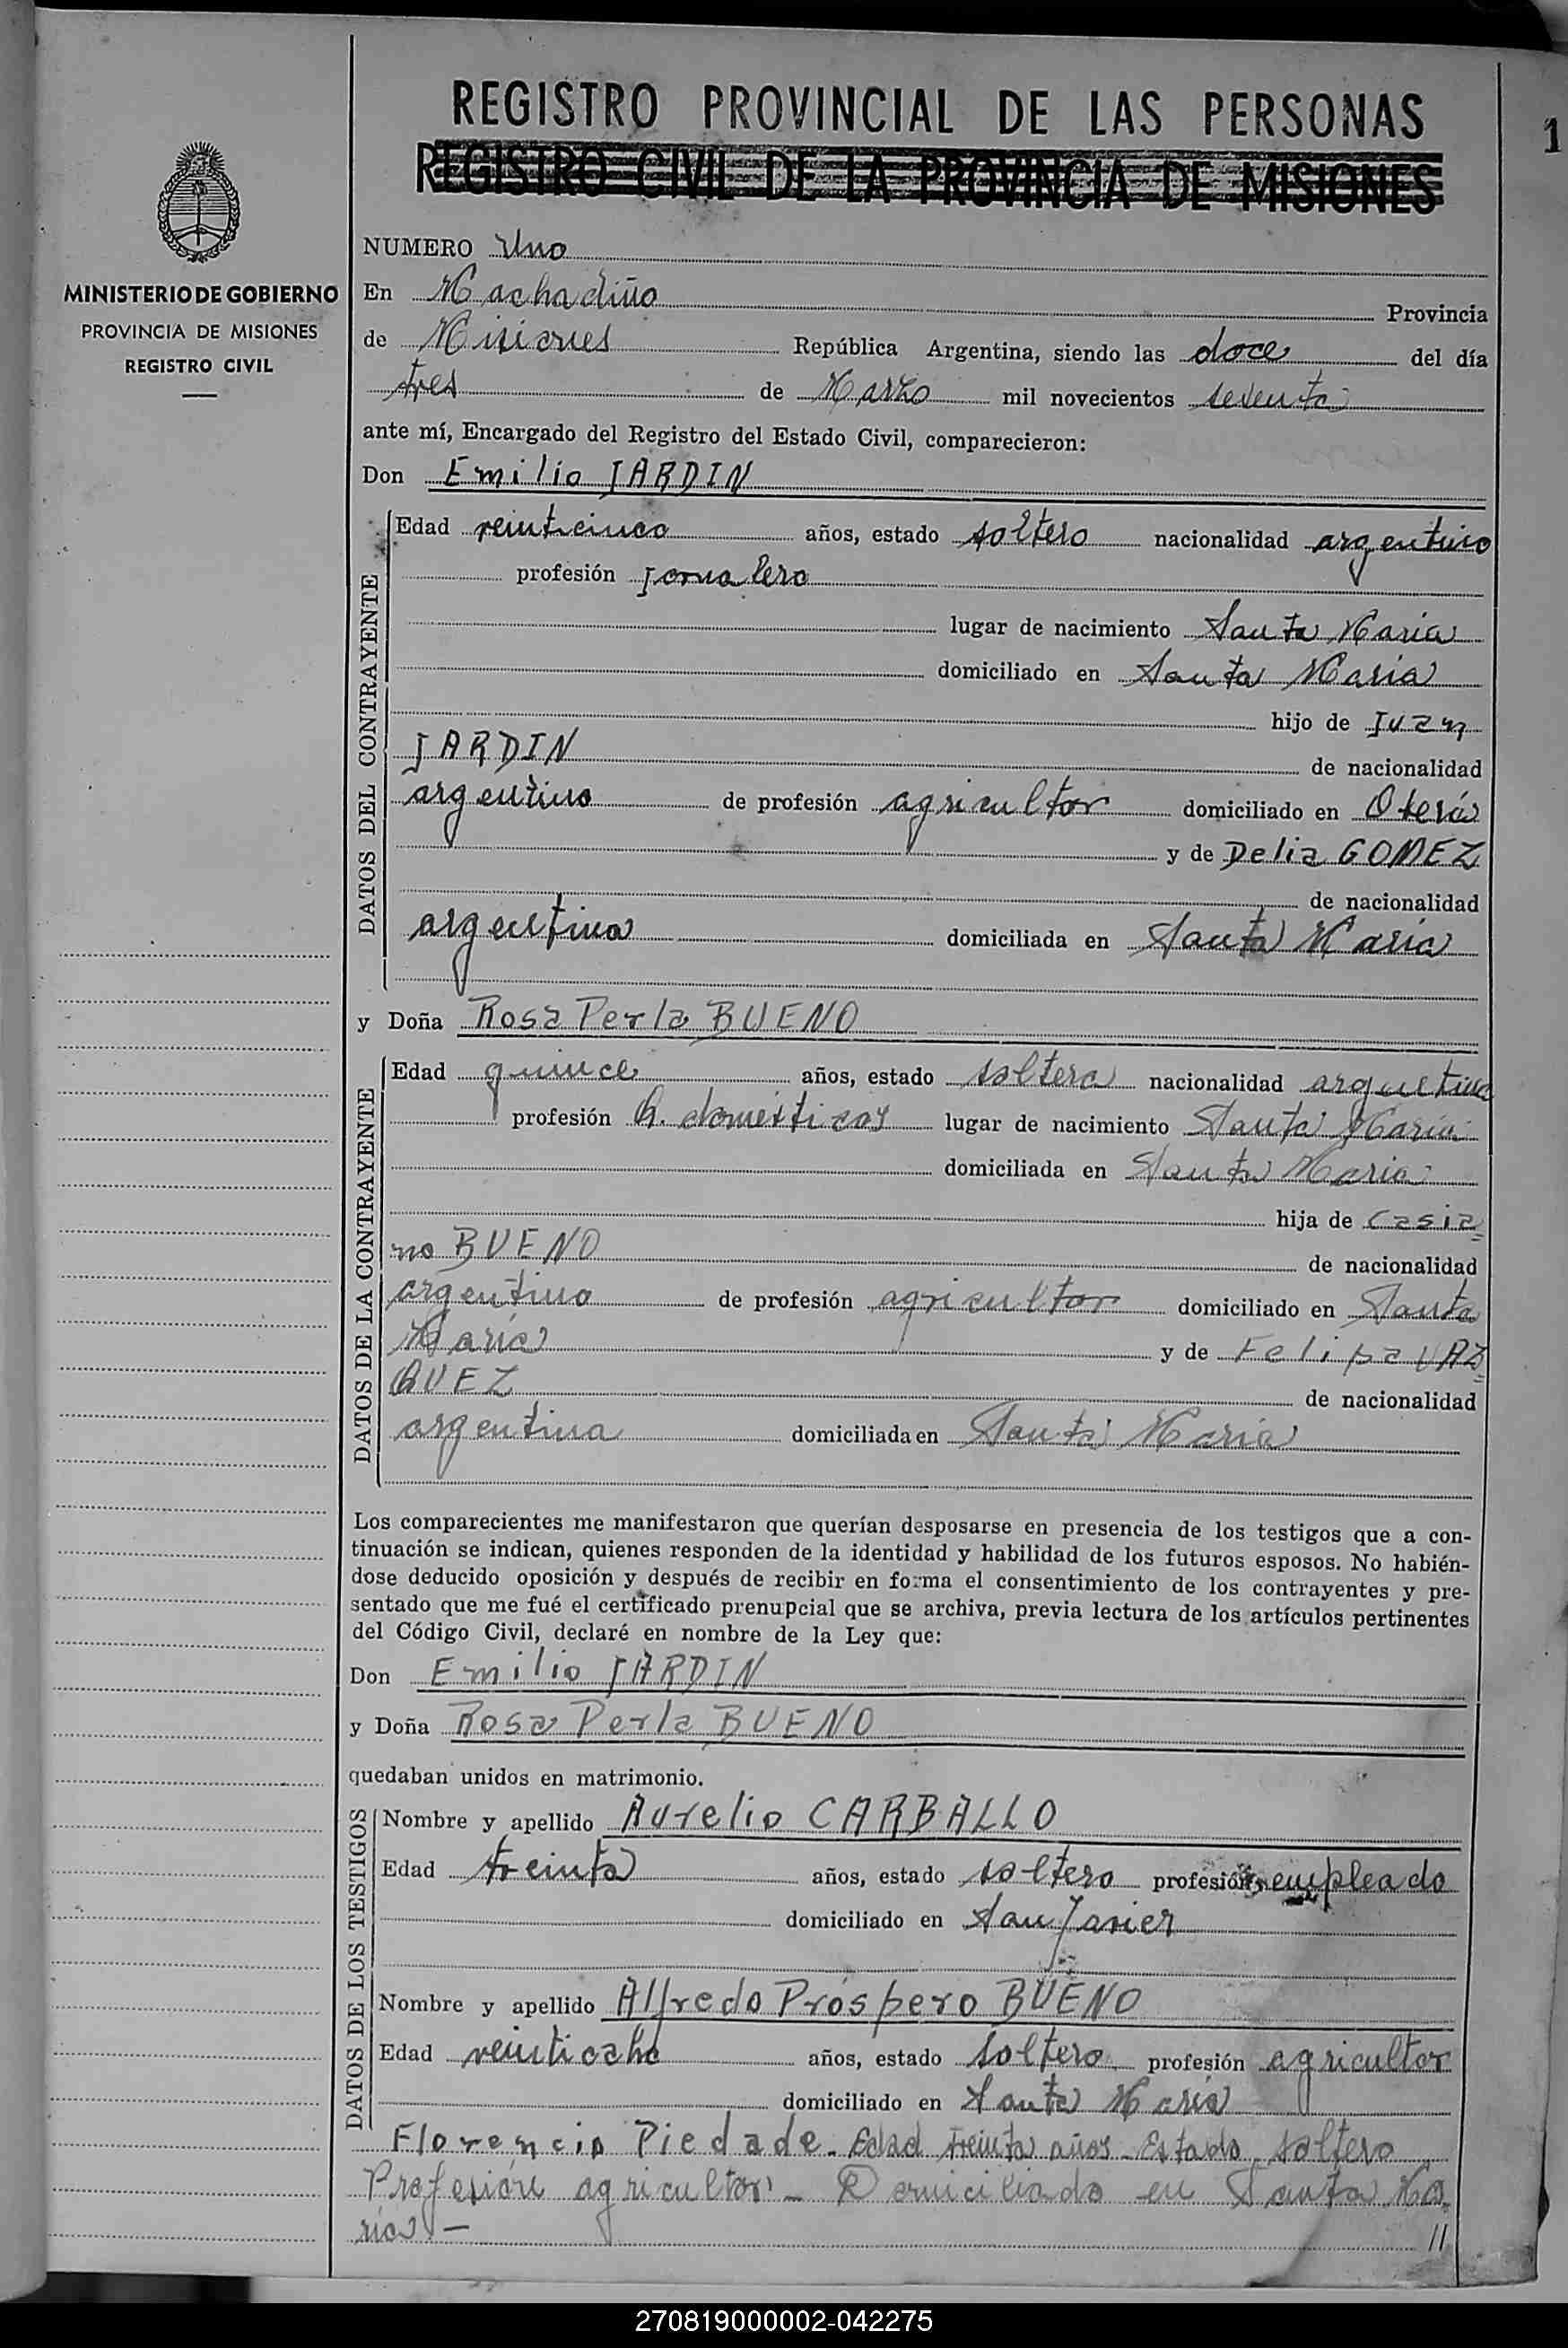 REGISTRO PROVINCIAL DE LAS PERSONAS
1
REGISTRO CIVIL DE LA PROVINCIA DE MISIONES
MINISTERIO DE GOBIERNO
PROVINCIA DE MISIONES
REGISTRO CIVIL
NUMERO Uno
En Machadiño Provincia
de Misiones República Argentina, siendo las doce del día
tres de Marzo mil novecientos setenta
ante mí, Encargado del Registro del Estado Civil, comparecieron:
Don Emilio JARDIN
DATOS DEL CONTRAYENTE
Edad veinticinco años, estado soltero nacionalidad argentino
profesión Jornalero
lugar de nacimiento Santa María
domiciliado en Santa María
hijo de Juan
JARDIN de nacionalidad
argentino de profesión agricultor domiciliado en Oberá
y de Delia GOMEZ
de nacionalidad
argentina domiciliada en Santa María
y Doña Rosa Perla BUENO
DATOS DE LA CONTRAYENTE
Edad quince años, estado soltera nacionalidad argentina
profesión Q. domésticos lugar de nacimiento Santa María
domiciliada en Santa María
hija de Casia
no BUENO de nacionalidad
argentino de profesión agricultor domiciliado en Santa
María y de Felipa VAZ
QUEZ de nacionalidad
argentina domiciliada en Santa María
Los comparecientes me manifestaron que querían desposarse en presencia de los testigos que a con-
tinuación se indican, quienes responden de la identidad y habilidad de los futuros esposos. No habién-
dose deducido oposición y después de recibir en forma el consentimiento de los contrayentes y pre-
sentado que me fué el certificado prenupcial que se archiva, previa lectura de los artículos pertinentes
del Código Civil, declaré en nombre de la Ley que:
Don Emilio JARDIN
y Doña Rosa Perla BUENO
quedaban unidos en matrimonio.
DATOS DE LOS TESTIGOS
Nombre y apellido Aurelio CARBALLO
Edad treinta años, estado soltero profesión empleado
domiciliado en San Javier
Nombre y apellido Alfredo Próspero BUENO
Edad veintiocho años, estado soltero profesión agricultor
domiciliado en Santa María
Florencio Piedade. Edad treinta años - Estado soltero
Profesión agricultor - Domiciliado en Santa Ma
ría - //
270819000002-042275